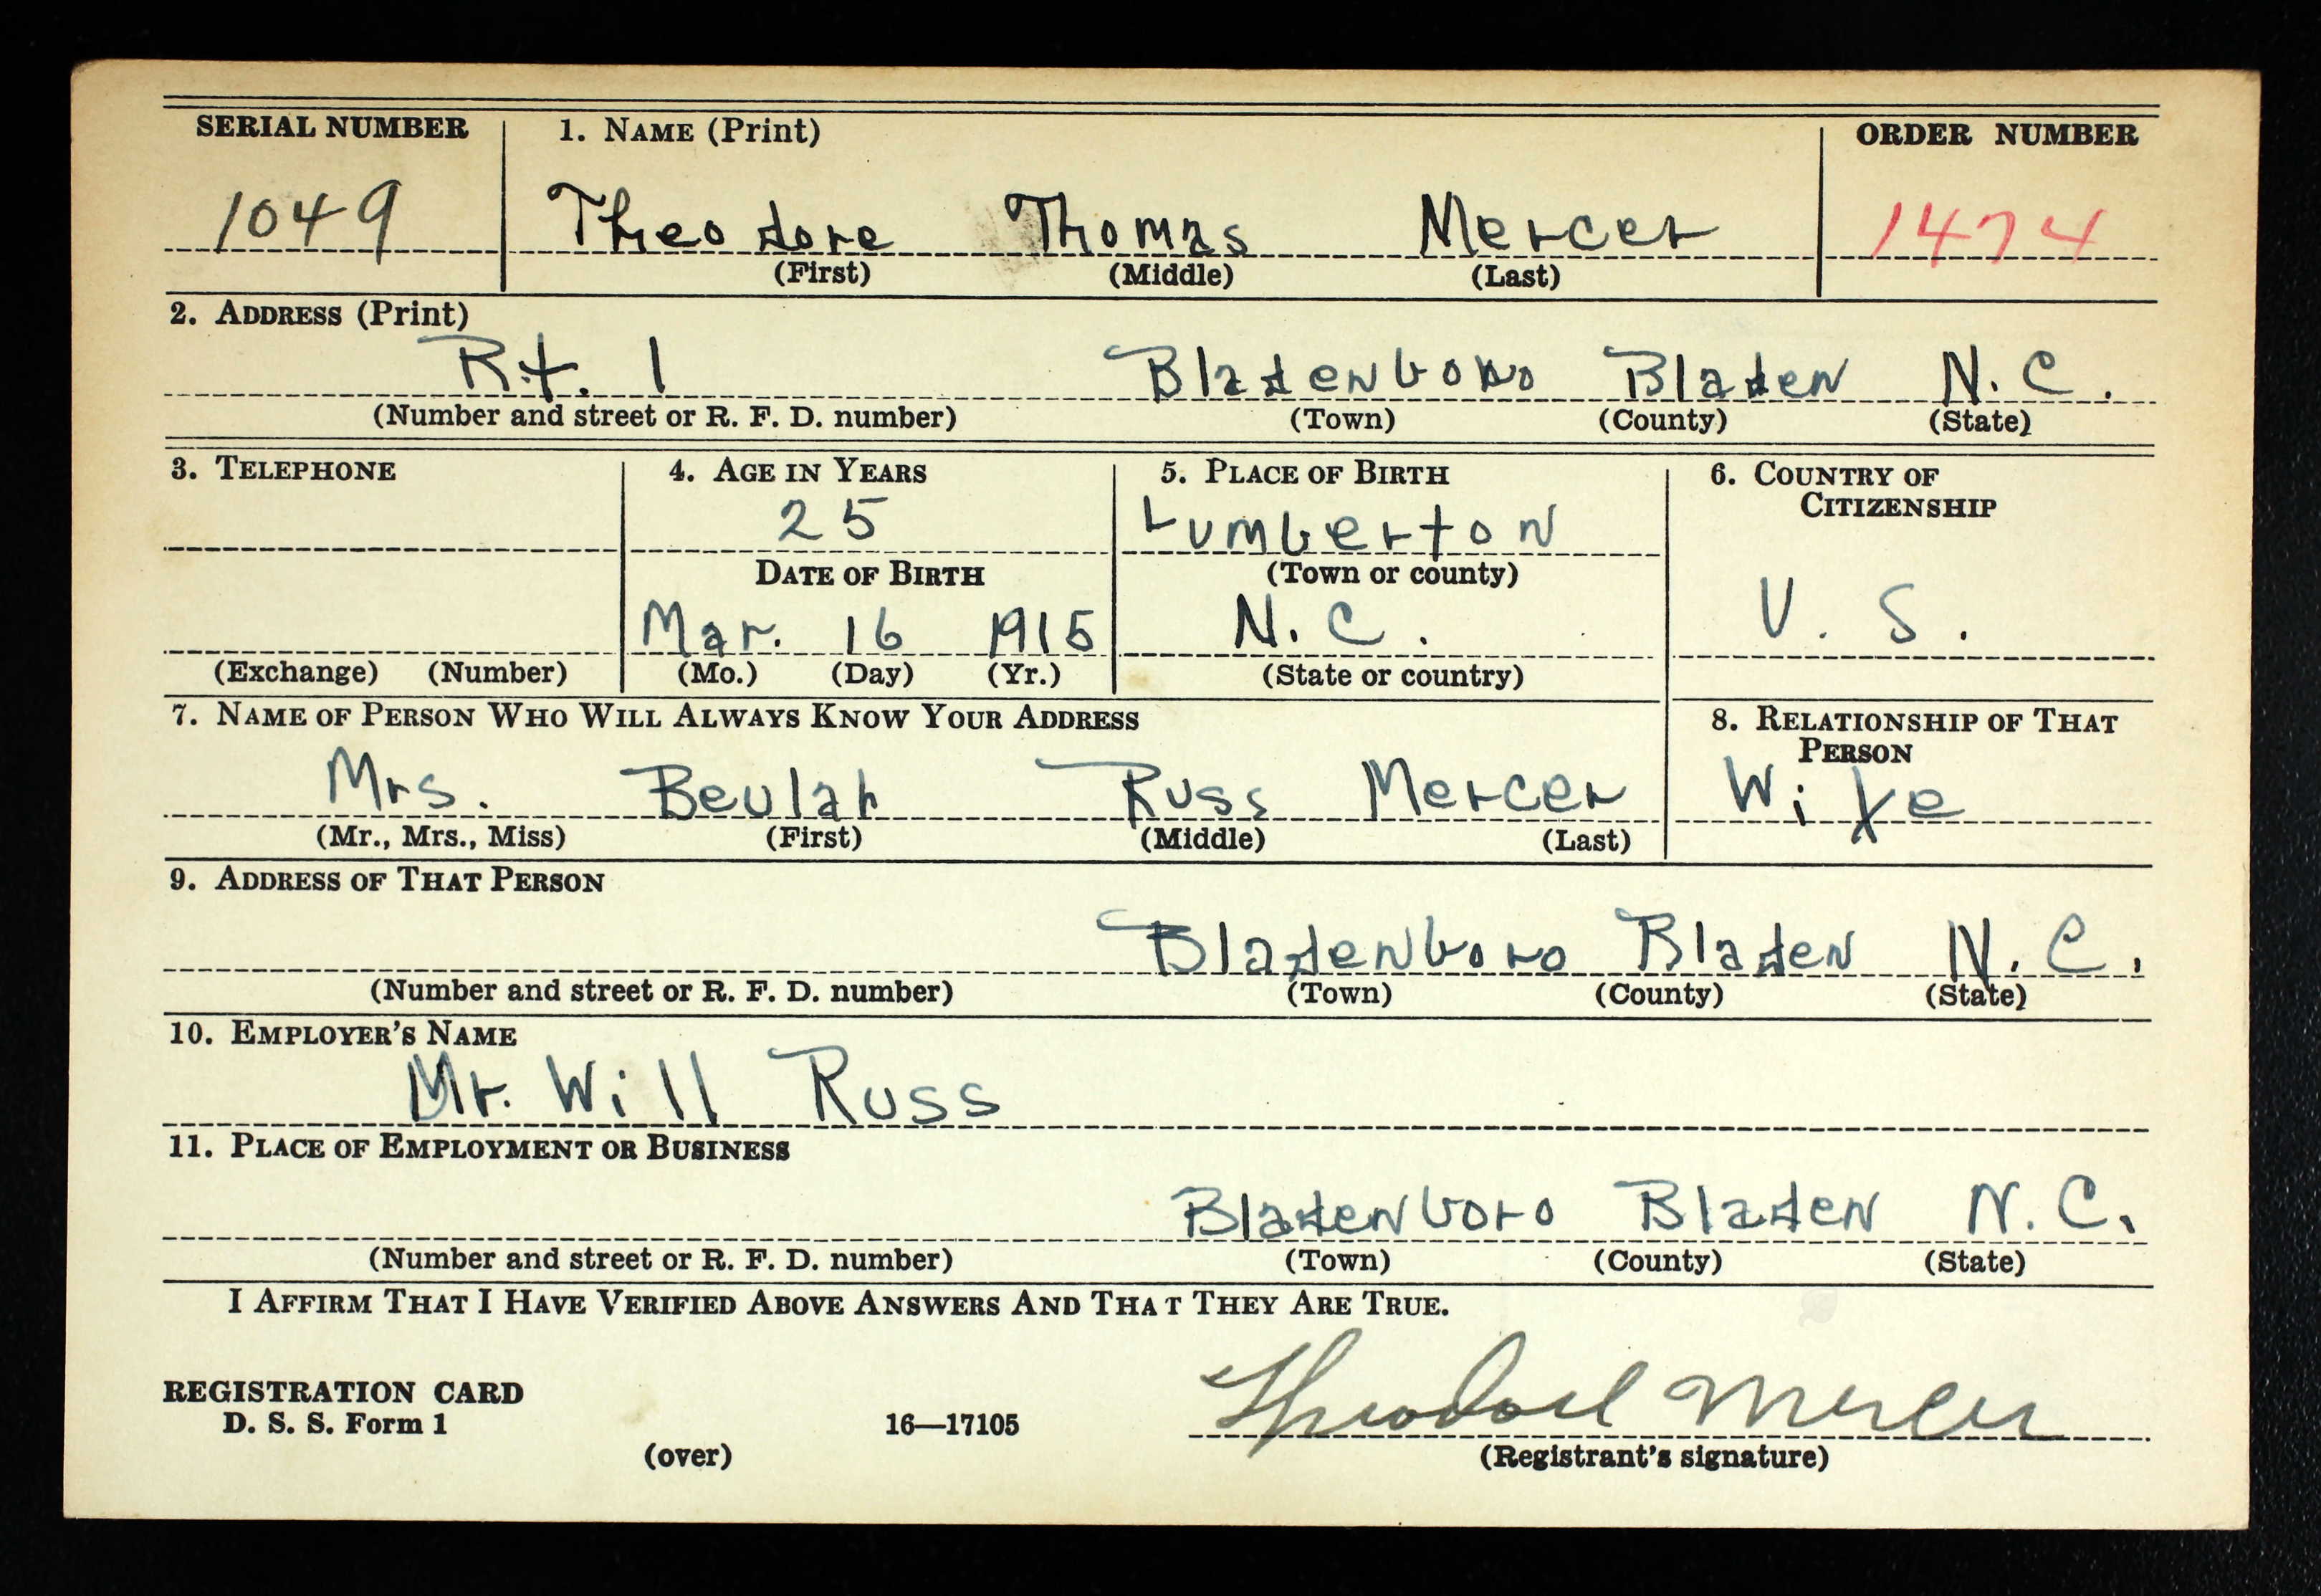 SERIAL NUMBER 1. NAME (Print) ORDER NUMBER
1049 Theodore Thomas Mercer 1474
(First) (Middle) (Last)
2. ADDRESS (Print)
Rt. 1 Bladenboro Bladen N.C.
(Number and street or R. F. D. number) (Town) (County) (State)
3. TELEPHONE 4. AGE IN YEARS 5. PLACE OF BIRTH 6. COUNTRY OF
CITIZENSHIP
25 Lumberton
DATE OF BIRTH (Town or county)
Mar. 16 1915 N.C. U. S.
(Exchange) (Number) (Mo.) (Day) (Yr.) (State or country)
7. NAME OF PERSON WHO WILL ALWAYS KNOW YOUR ADDRESS 8. RELATIONSHIP OF THAT
PERSON
Mrs. Beulah Russ Mercer Wife
(Mr., Mrs., Miss) (First) (Middle) (Last)
9. ADDRESS OF THAT PERSON
Bladenboro Bladen N.C.
(Number and street or R. F. D. number) (Town) (County) (State)
10. EMPLOYER'S NAME
Mr. Will Russ
11. PLACE OF EMPLOYMENT OR BUSINESS
Bladenboro Bladen N.C.
(Number and street or R. F. D. number) (Town) (County) (State)
I AFFIRM THAT I HAVE VERIFIED ABOVE ANSWERS AND THAT THEY ARE TRUE.
REGISTRATION CARD
D. S. S. Form 1 16—17105 Theodore Mercer
(over) (Registrant's signature)